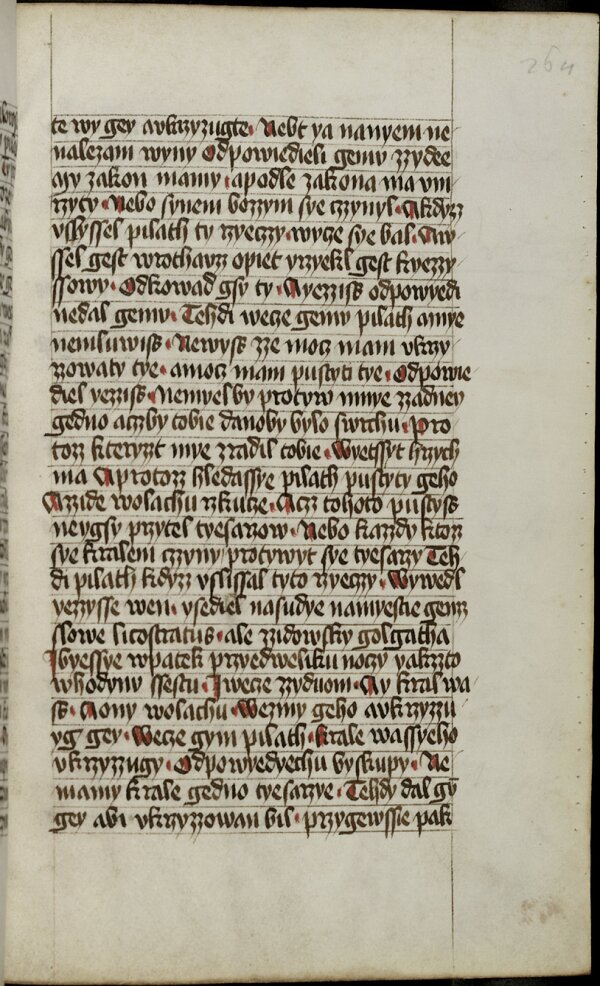 te wy gey avkrzyzugte. Nebt ya nanyem ne
nalezam wyny Odpowiedieli gemu zzydee
My zakon mamy. apodle zakona ma vm
rzyty. Nebo synem bozzym sye czynyl. Akdyzz
vslyssel pilath ty rzyeczy. wycze sye bal. Awy
ssel gest wrothawzz opiet yrzyekl gest kyezzy
ssowy. Odkowad gsy ty. Ayezziss odpowyedi
nedal gemu. Tehdi wecze gemu pilath amye
nemluwiss. Newyss zze mocz mam vkrzy
zzowaty tye. amocz mam pustyti tye. Odpowie
diel yezziss. Nemyelby protyw mnye zzadney
gedno aczby tobie danoby bylo swrchu. Pro
tozz kteryzt mye zradil tobie. Wyetssyt hrzych
ma Aprotozz hledassye pilath pustyty geho
Azzide wolachu rzkucze. Acz tohoto pustyss
neygsy przytel tyesarzow. Nebo kazzdy ktozz
sye kralem czzyny protywyt sye tyesarzy Teh
di pilath kdyzz vslissal tyto rzyeczy. Wywedl
yezzysse wen. ysediel nasudye namyestie genz
slowe licostratus. ale zzidowsky golgatha
Ibyessye wpatek przyedweliku noczy yakzto
whodynu ssestu. Iwecze zzyduom. Ay kral wa
ss. Aony wolachu. Wezmy geho avkrzyzzu
yg gey. Wecze gym pilath. Krale wassyeho
vkrzyzzugy. Odpowyedyechu byskupy. Ne
mamy krale gedno tyesarzye. Tehdy dal gym
gey abi vkrzyzzowan bil. przygewssie pak
264